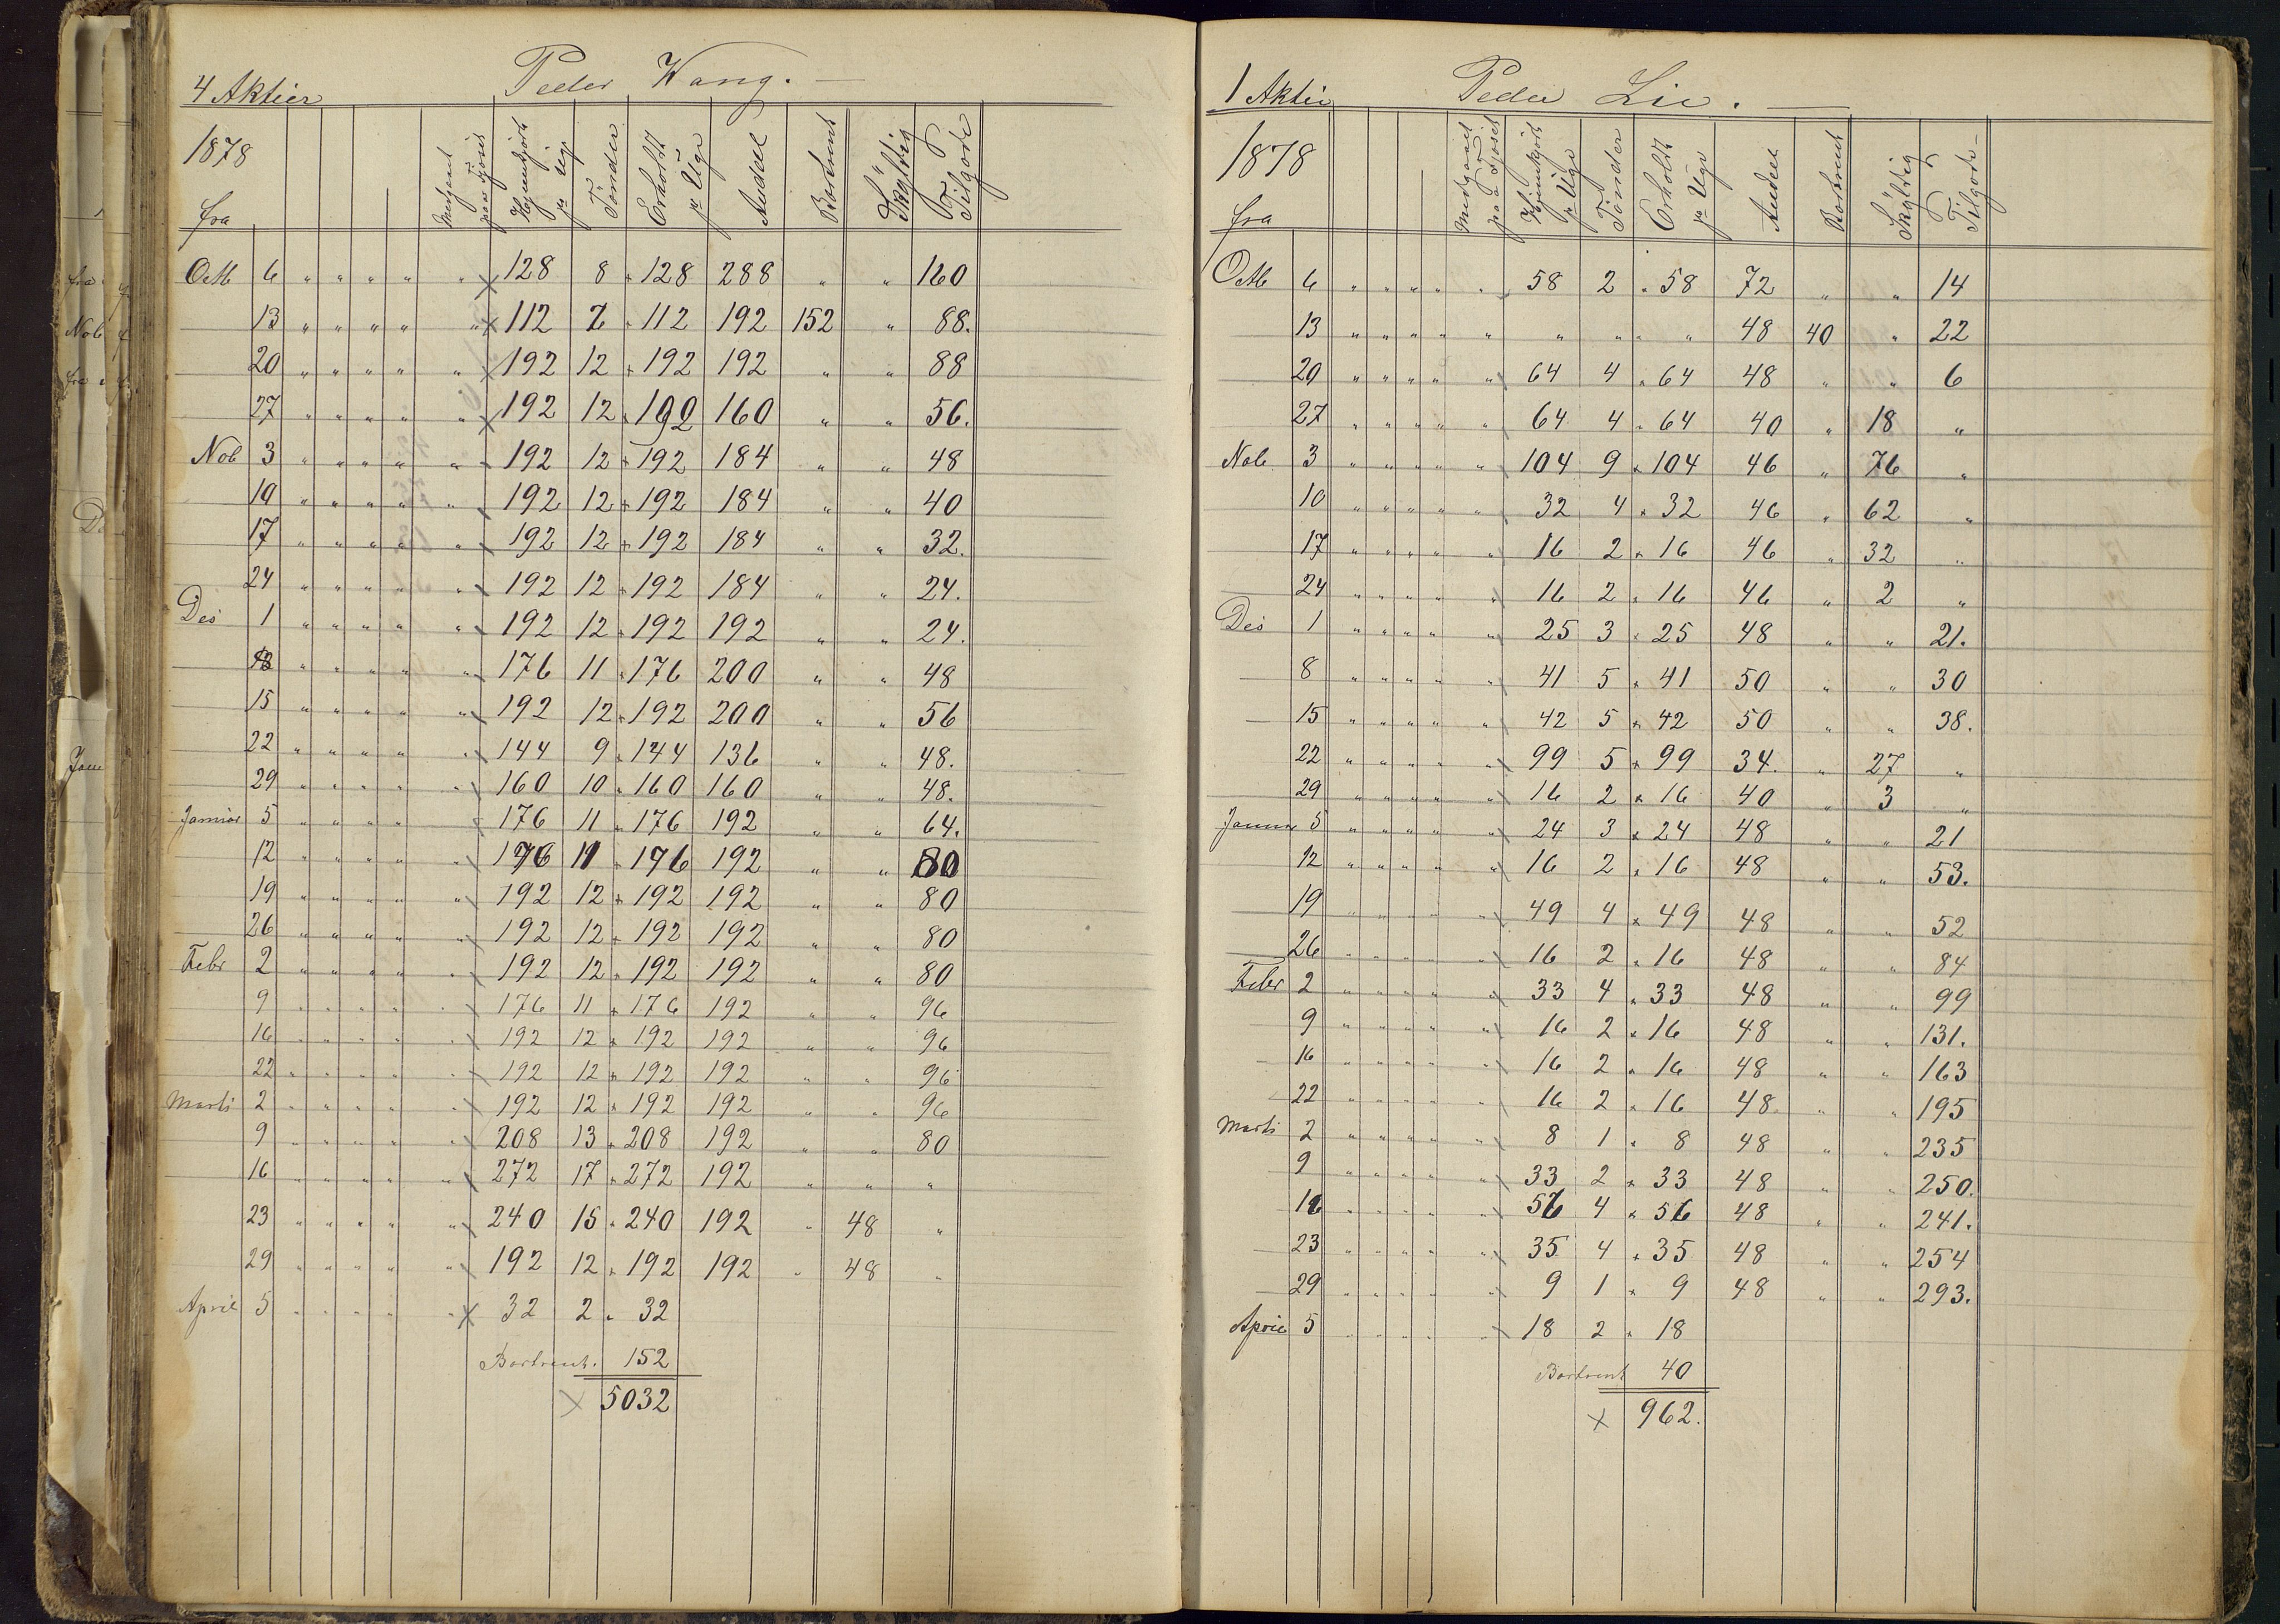 4 Aktier Peder Wang. —
1878 Medgaaet paa Fjøset Hjemkjørt pr Uge Tönder Erholdt pr Uge Andel Bortrent Skÿldig Tilgode
fra
Octb 6 " " " " " 128 8 " 128 288 " " 160
13 " " " " " 112 7 " 112 192 152 " 88.
20 " " " " " 192 12 " 192 192 " " 88
27 " " " " " 192 12 " 192 160 " " 56.
Nob 3 " " " " " 192 12 " 192 184 " " 48
10 " " " " " 192 12 " 192 184 " " 40
17 " " " " " 192 12 " 192 184 " " 32.
24 " " " " " 192 12 " 192 184 " " 24.
Des 1 " " " " " 192 12 " 192 192 " " 24.
8 " " " " " 176 11 " 176 200 " " 48
15 " " " " " 192 12 " 192 200 " " 56
22 " " " " " 144 9 " 144 136 " " 48.
29 " " " " " 160 10 " 160 160 " " 48.
Januar 5 " " " " 176 11 " 176 192 " " 64.
12 " " " " " 176 11 " 176 192 " " 80
19 " " " " " 192 12 " 192 192 " " 80
26 " " " " " 192 12 " 192 192 " " 80
Febr 2 " " " " " 192 12 " 192 192 " " 80
9 " " " " " 176 11 " 176 192 " " 96
16 " " " " " 192 12 " 192 192 " " 96
22 " " " " " 192 12 " 192 192 " " 96
Marts 2 " " " " " 192 12 " 192 192 " " 96
9 " " " " " 208 13 " 208 192 " " 80
16 " " " " " 272 17 " 272 192 " " "
23 " " " " " 240 15 " 240 192 " 48 "
29 " " " " " 192 12 " 192 192 " 48 "
April 5 " " " " " x 32 2 " 32
Bortrent. 152
x 5032
1 Aktie Peder Lie. —
1878 Medgaaet paa Fjøset Hjemkjört pr Uge Tönder Erholdt pr Uge Andel Bortrent Skÿldig Tilgode
fra
Octb 6 " " " " " 58 2 " 58 72 " " 14
13 " " " " " " " " " 48 40 " 22
20 " " " " " 64 4 " 64 48 " " 6
27 " " " " " 64 4 " 64 40 " 18 "
Nob 3 " " " " " 104 9 " 104 46 " 76 "
10 " " " " " 32 4 " 32 46 " 62 "
17 " " " " " 16 2 " 16 46 " 32 "
24 " " " " " 16 2 " 16 46 " 2 "
Des 1 " " " " " 25 3 " 25 48 " " 21.
8 " " " " " 41 5 " 41 50 " " 30
15 " " " " " 42 5 " 42 50 " " 38.
22 " " " " " 99 5 " 99 34. " 27 "
29 " " " " " 16 2 " 16 40 " 3 "
Januar 5 " " " " " 24 3 " 24 48 " " 21
12 " " " " " 16 2 " 16 48 " " 53.
19 " " " " " 49 4 " 49 48 " " 52
26 " " " " " 16 2 " 16 48 " " 84
Febr 2 " " " " " 33 4 " 33 48 " " 99
9 " " " " " 16 2 " 16 48 " " 131.
16 " " " " " 16 2 " 16 48 " " 163
22 " " " " " 16 2 " 16 48 " " 195
Marts 2 " " " " " 8 1 " 8 48 " " 235
9 " " " " " 33 2 " 33 48 " " 250.
16 " " " " " 56 4 " 56 48 " " 241.
23 " " " " " 35 4 " 35 48 " " 254
29 " " " " " 9 1 " 9 48 " " 293.
April 5 " " " " " 18 2 " 18
Bortrent 40
x 962.